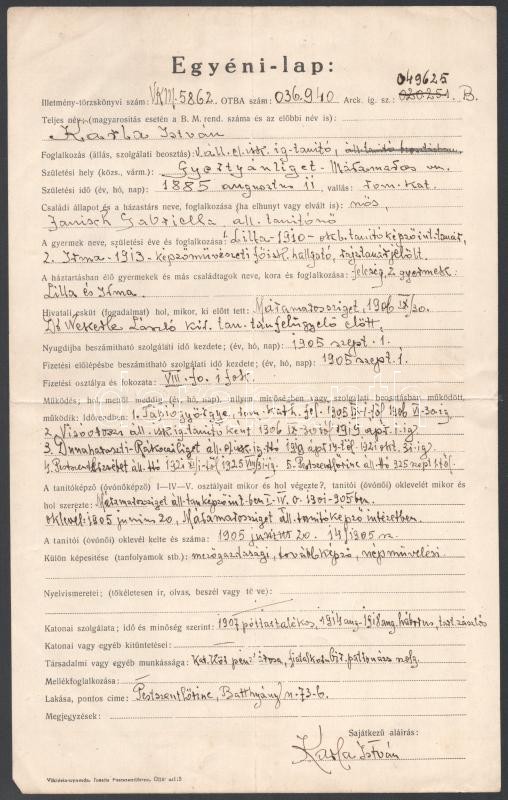 Egyéni-lap:
049625
Illetmény-törzskönyvi szám: VKM. 5862. OTBA szám: 036.940 Arck. ig. sz. 020251. B.
Teljes név (magyarosítás esetén a B. M. rend. száma és az előbbi név is):
Karla István
Foglalkozás (állás, szolgálati beosztás): áll. el. isk. ig-tanító,
Születési hely (közs., várm.): Gyertyánliget. Máramaros vm.
Születési idő (év, hó, nap): 1885 augusztus 11, vallás: rom. kat.
Családi állapot és a házastárs neve, foglalkozása (ha elhunyt vagy elvált is): nős,
Janisch Gabriella áll. tanítónő
A gyermek neve, születési éve és foglalkozása: 1. Lilla-1910- okl. tanítóképző int. tanár,
2. Irma-1913-képzőművészeti főisk. hallgató, rajztanárjelölt.
A háztartásban élő gyermekek és más családtagok neve, kora és foglalkozása: feleség, 2 gyermek:
Lilla és Irma.
Hivatali esküt (fogadalmat) hol, mikor, ki előtt tett: Máramarossziget, 1906 IX/30.
Dr Wekerle László kir. tan. tanfelügyelő előtt.
Nyugdíjba beszámítható szolgálati idő kezdete; (év, hó, nap) 1905 szept. 1.
Fizetési előlépésbe beszámítható szolgálati idő kezdete; (év, hó, nap): 1905 szept. 1.
Fizetési osztálya és fokozata: VIII. fo. 1 fok.
Működés; hol, mettől meddig (év, hó, nap), milyen minőségben vagy szolgálati beosztásban működött,
működik időrendben: 1. Tápiógyörgye, rom. kath. fel. 1905 -től 1906 VI-30-ig
2. Visóoroszi áll. isk. ig-tanítóként 1906 IX-30-tól 1919 ápr. 1.-ig
3. Dunaharaszti-Rákocziliget áll. el. isk. ig. tt6 1919 ápr. 1-től 1921 okt. 31-ig.
4. Pestszenterzsébet áll. 1921 -től 1925 -ig. 5. Pestszentlőrinc áll. 925 szept. 1. től.
A tanítóképző (óvónőképző) I—IV—V. osztályait mikor és hol végezte?, tanítói (óvónői) oklevelét mikor és
hol szerezte: Máramarossziget áll. tanképző int-ben I-IV. o. 1901-905-ben.
oklevél: 1905 junius 20, Máramarossziget áll. tanítóképző intézetben.
A tanítói (óvónői) oklevél kelte és száma: 1905 junius 20. 14/1905 sz.
Külön képesítése (tanfolyamok stb.): mezőgazdasági, továbbképző, népművelési
Nyelvismeretei; (tökéletesen ír, olvas, beszél vagy töve):
Katonai szolgálata; idő és minőség szerint: 1907 póttartalékos, 1914 aug-1918 aug. háborus,
Katonai vagy egyéb kitüntetései:
Társadalmi vagy egyéb munkássága: Kat. Kör
Mellékfoglalkozása:
Lakása, pontos címe: Pestszentlőrinc, Batthyány u. 73-b.
Megjegyzések:
Sajátkezű aláírás:
Karla István